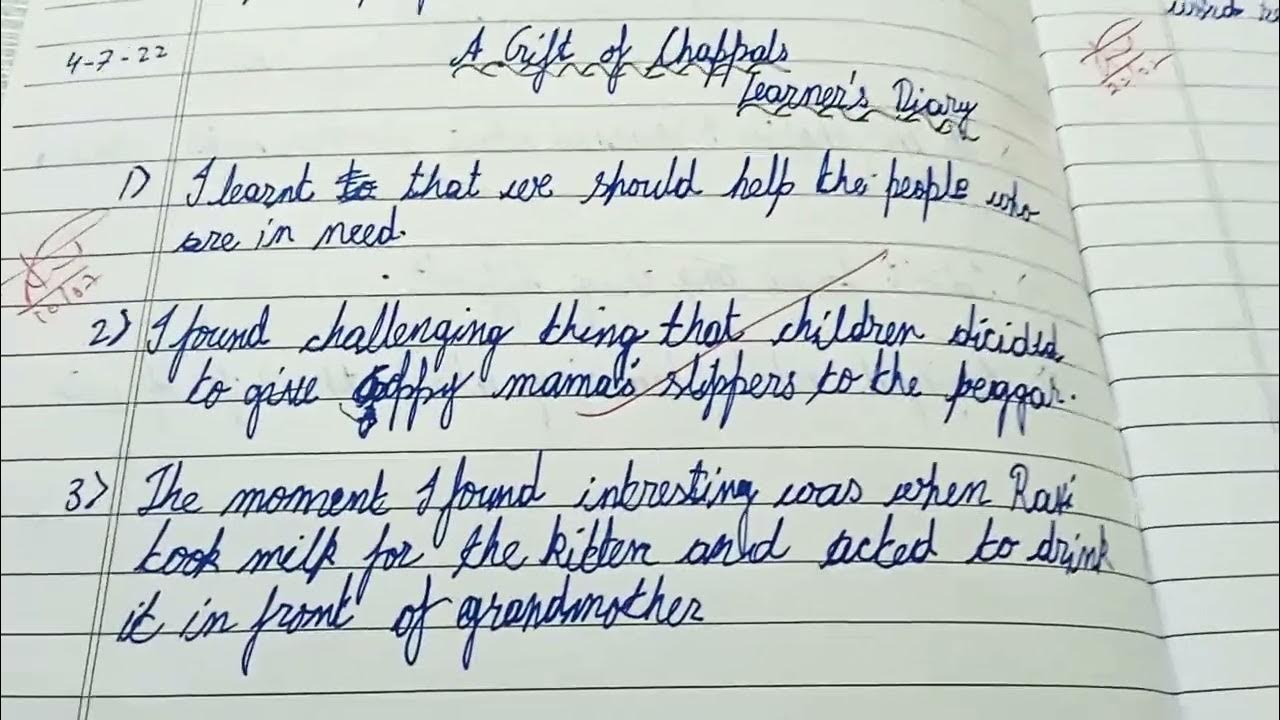 4-7-22
A Gift of Chappals
Learner's Diary
1) I learnt that we should help the people who
are in need.
2) I found challenging thing that children dicided
to give Gappy mama's slippers to the beggar.
3) The moment I found intresting was when Ravi
took milk for the kitten and acted to drink
it in front of grandmother